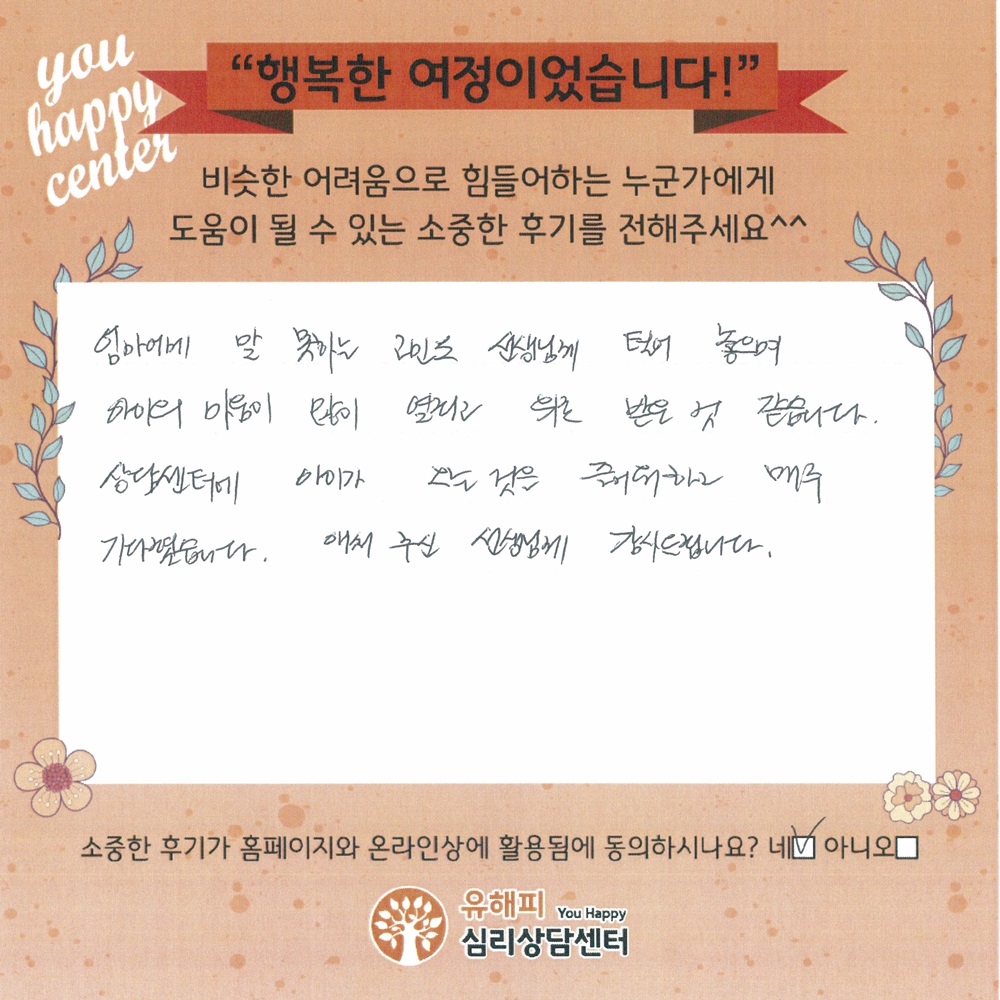 you
happy
center
“행복한 여정이었습니다!”
비슷한 어려움으로 힘들어하는 누군가에게
도움이 될 수 있는 소중한 후기를 전해주세요^^
엄마에게 말 못하는 고민도 선생님께 털어 놓으며
아이의 마음이 많이 열리고 위로 받은 것 같습니다.
상담센터에 아이가 오는 것을 즐거워하고 매주
기다렸습니다. 애써 주신 선생님께 감사드립니다.
소중한 후기가 홈페이지와 온라인상에 활용됨에 동의하시나요? 네☑ 아니오☐
유해피 You Happy
심리상담센터